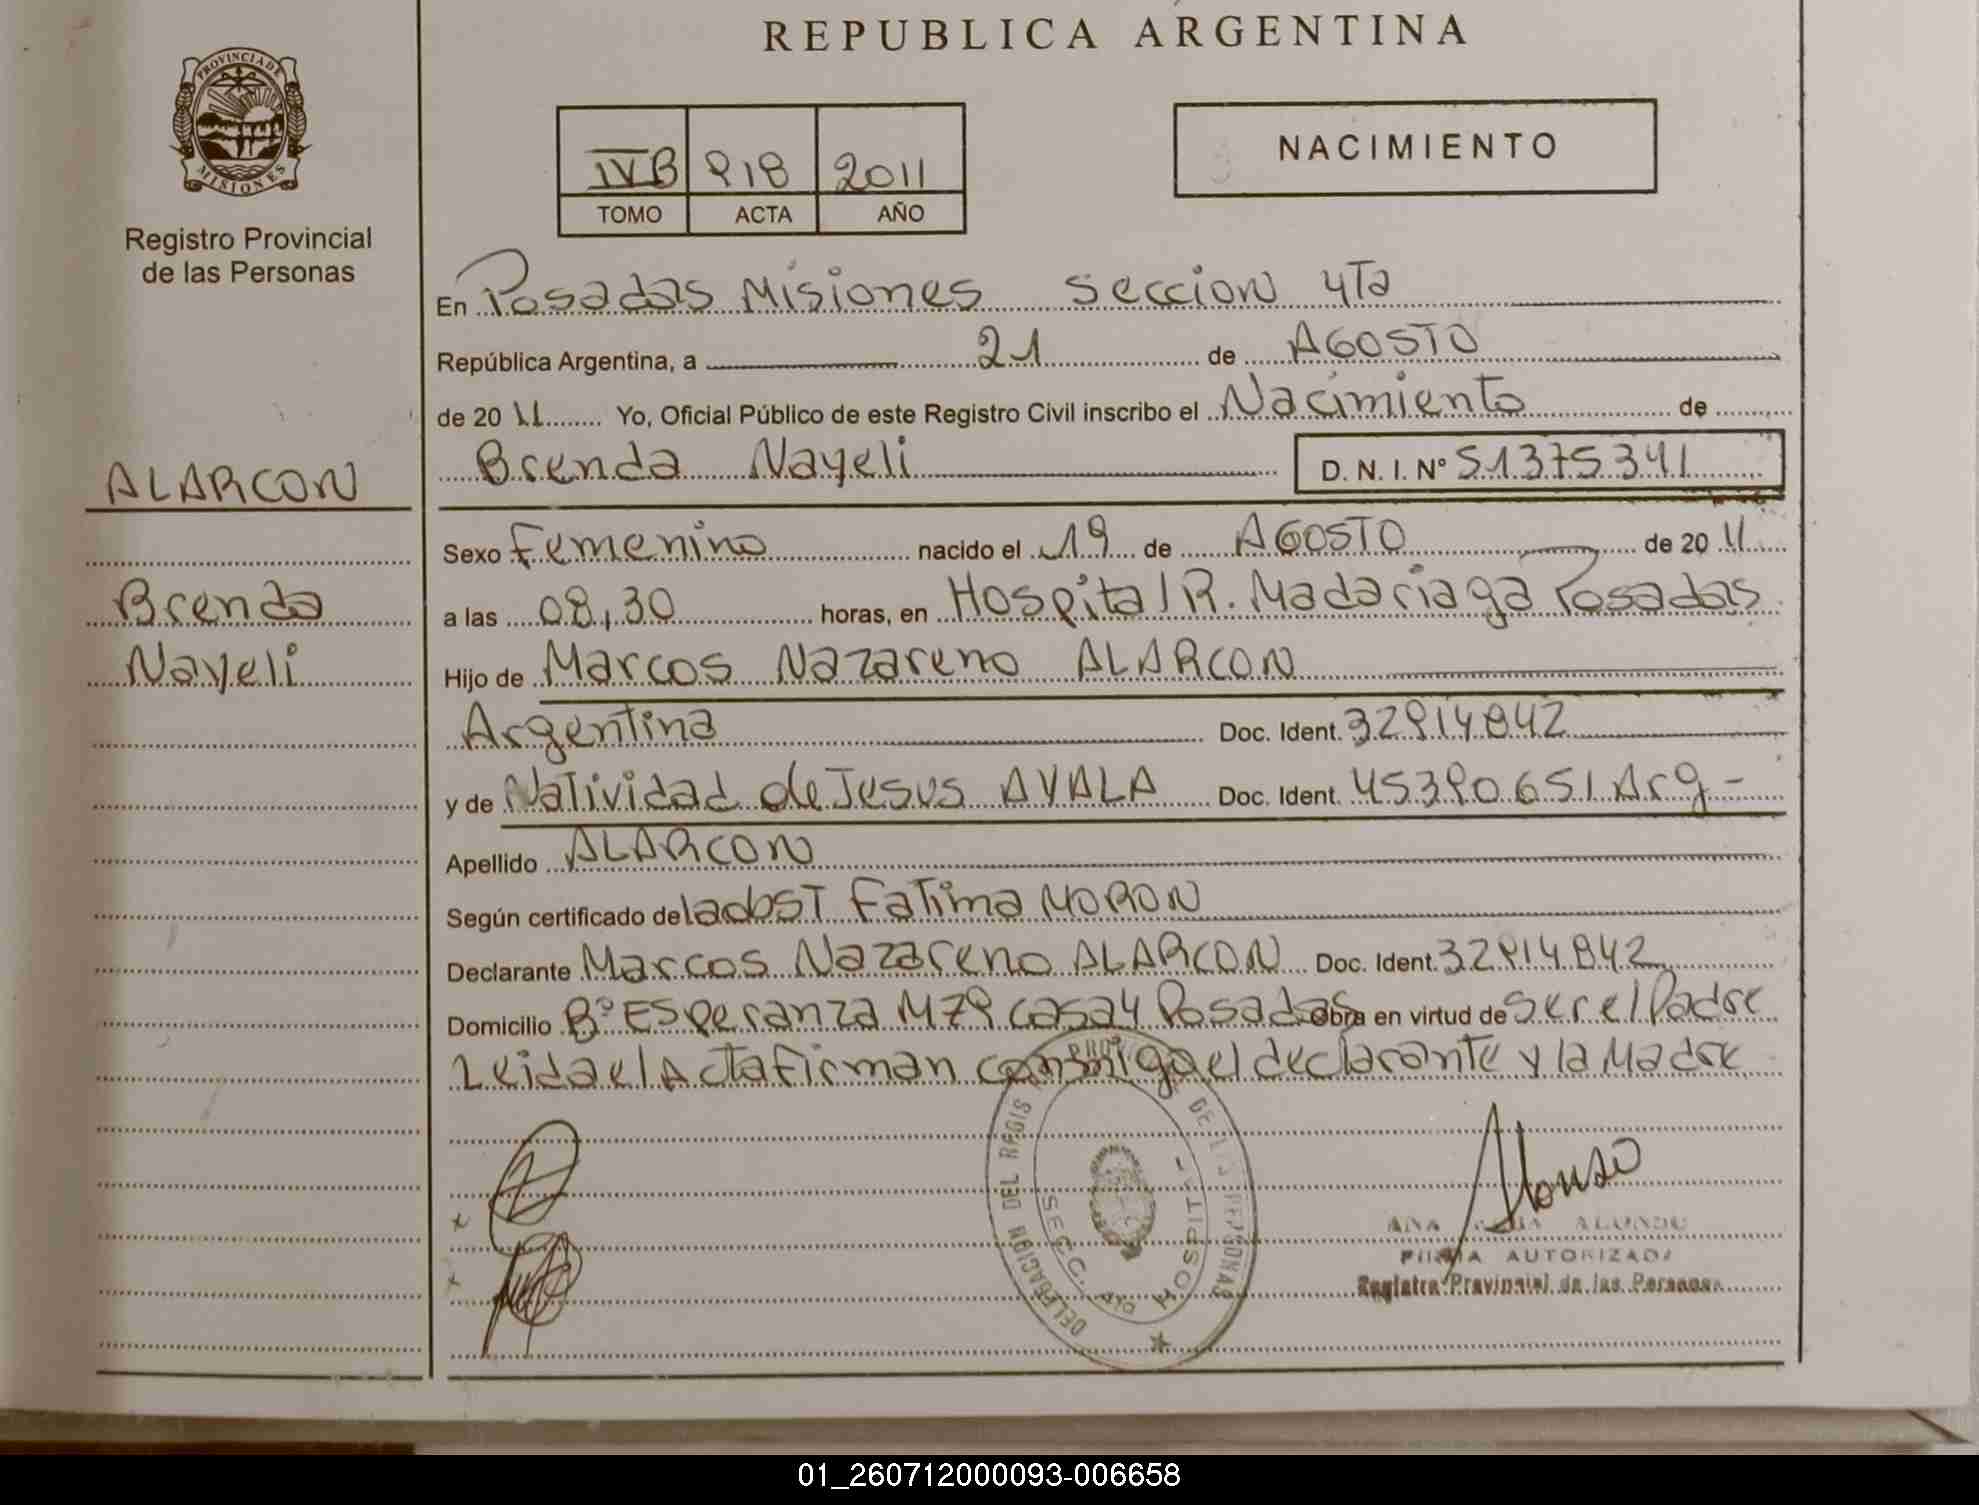 REPUBLICA ARGENTINA
PROVINCIA DE
MISIONES
Registro Provincial
de las Personas
IVB 918 2011
TOMO ACTA AÑO
NACIMIENTO
En Posadas Misiones seccion 4Ta
República Argentina, a 21 de AGOSTO
de 2011 Yo, Oficial Público de este Registro Civil inscribo el Nacimiento de
Brenda Nayeli D. N. I. Nº 51375341
ALARCON
Brenda
Nayeli
Sexo Femenino nacido el 19 de AGOSTO de 2011
a las 08,30 horas, en Hospital R. Madariaga Posadas
Hijo de Marcos Nazareno ALARCON
Argentina Doc. Ident. 32914842
y de Natividad de Jesus AYALA Doc. Ident. 45390651 Arg -
Apellido ALARCON
Según certificado de la obsT Fatima MORON
Declarante Marcos Nazareno ALARCON Doc. Ident. 32914842
Domicilio Bº Esperanza M79 casa 4 Posadas Obra en virtud de ser el Padre
Leida el Acta firman conmigo el declarante y la Madre
DELEGACION DEL REGIS PROVINCIAL DE LAS PERSONAS
SECC. 4ta HOSPITAL
Alonso
ANA ALONSO
FIRMA AUTORIZADA
Registro Provincial de las Personas
01_260712000093-006658